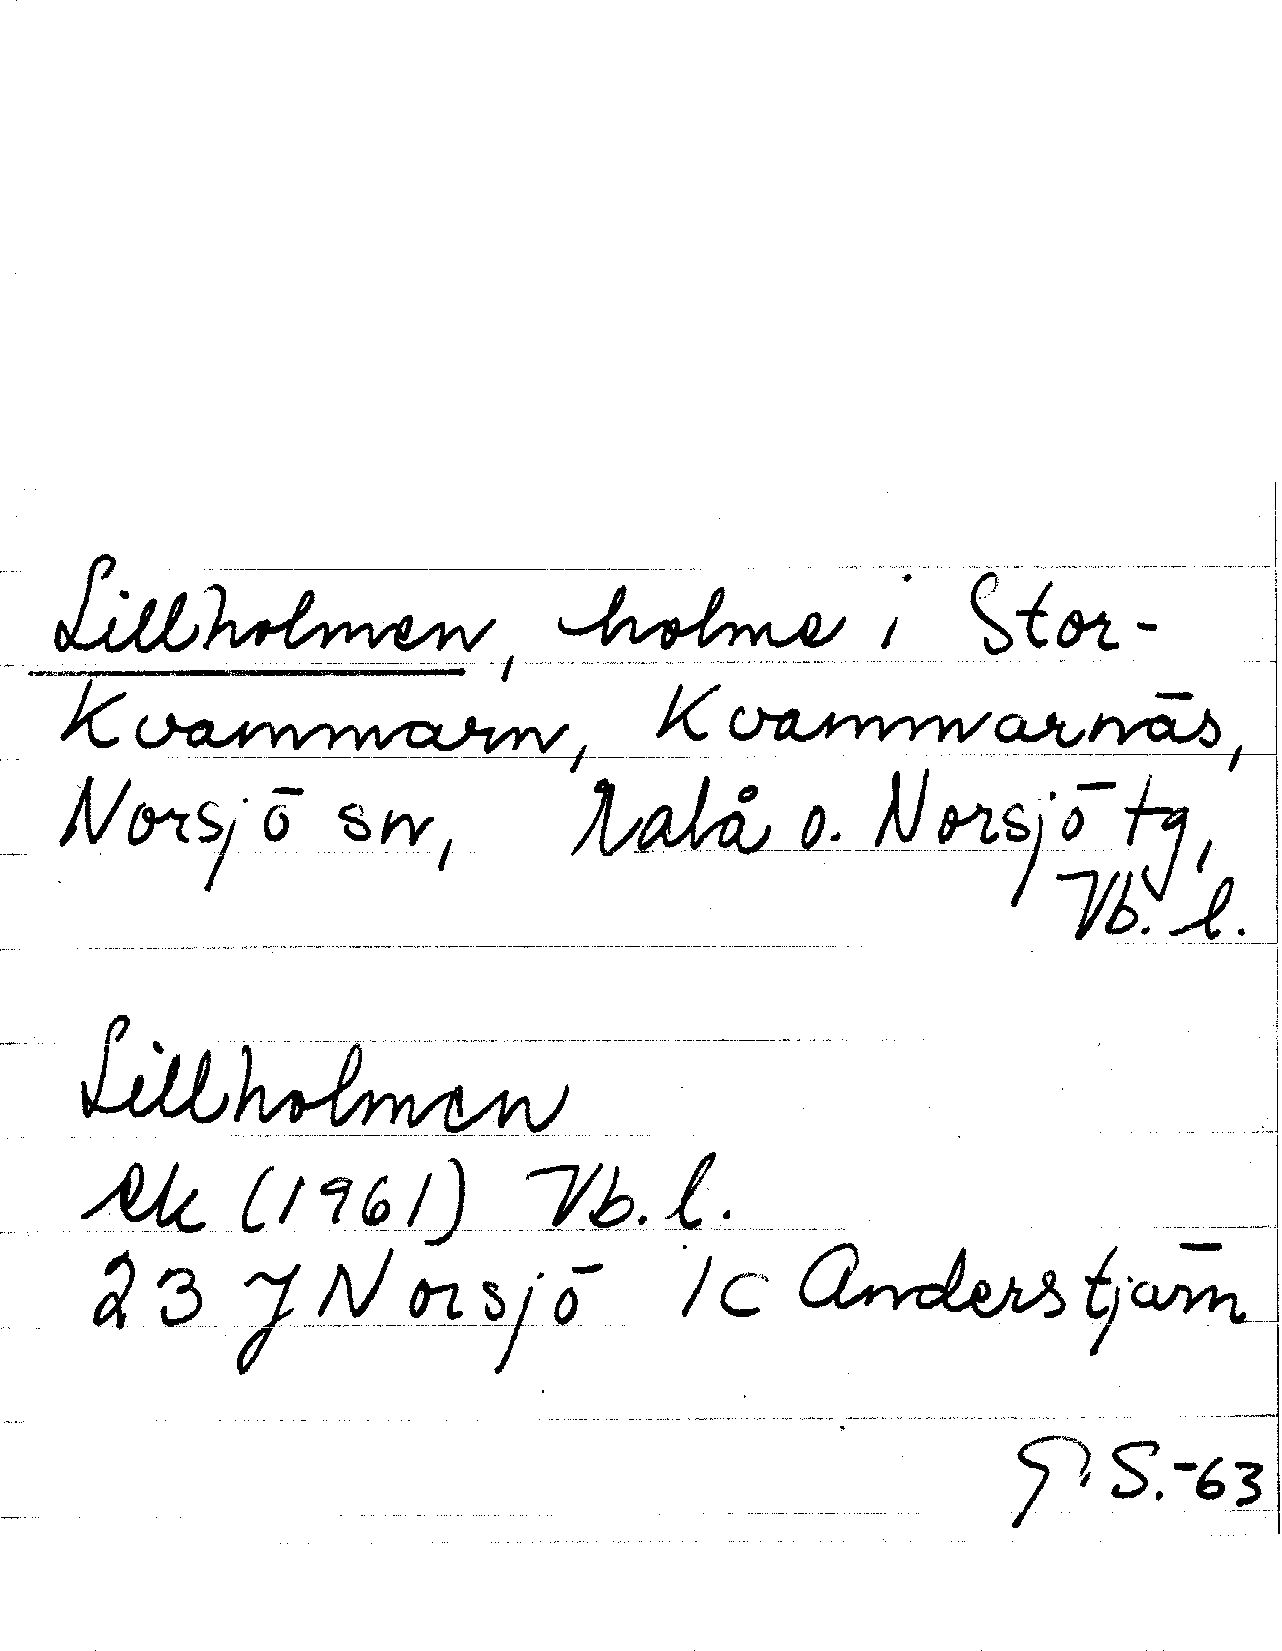 Lillholmen, holme i Stor-
Kvammarn, Kvammarnäs,
Norsjö sn, Malå o. Norsjö tg,
Vb. l.
Lillholmen
ek (1961) Vb. l.
23 J Norsjö 1c Anderstjärn
S.-63